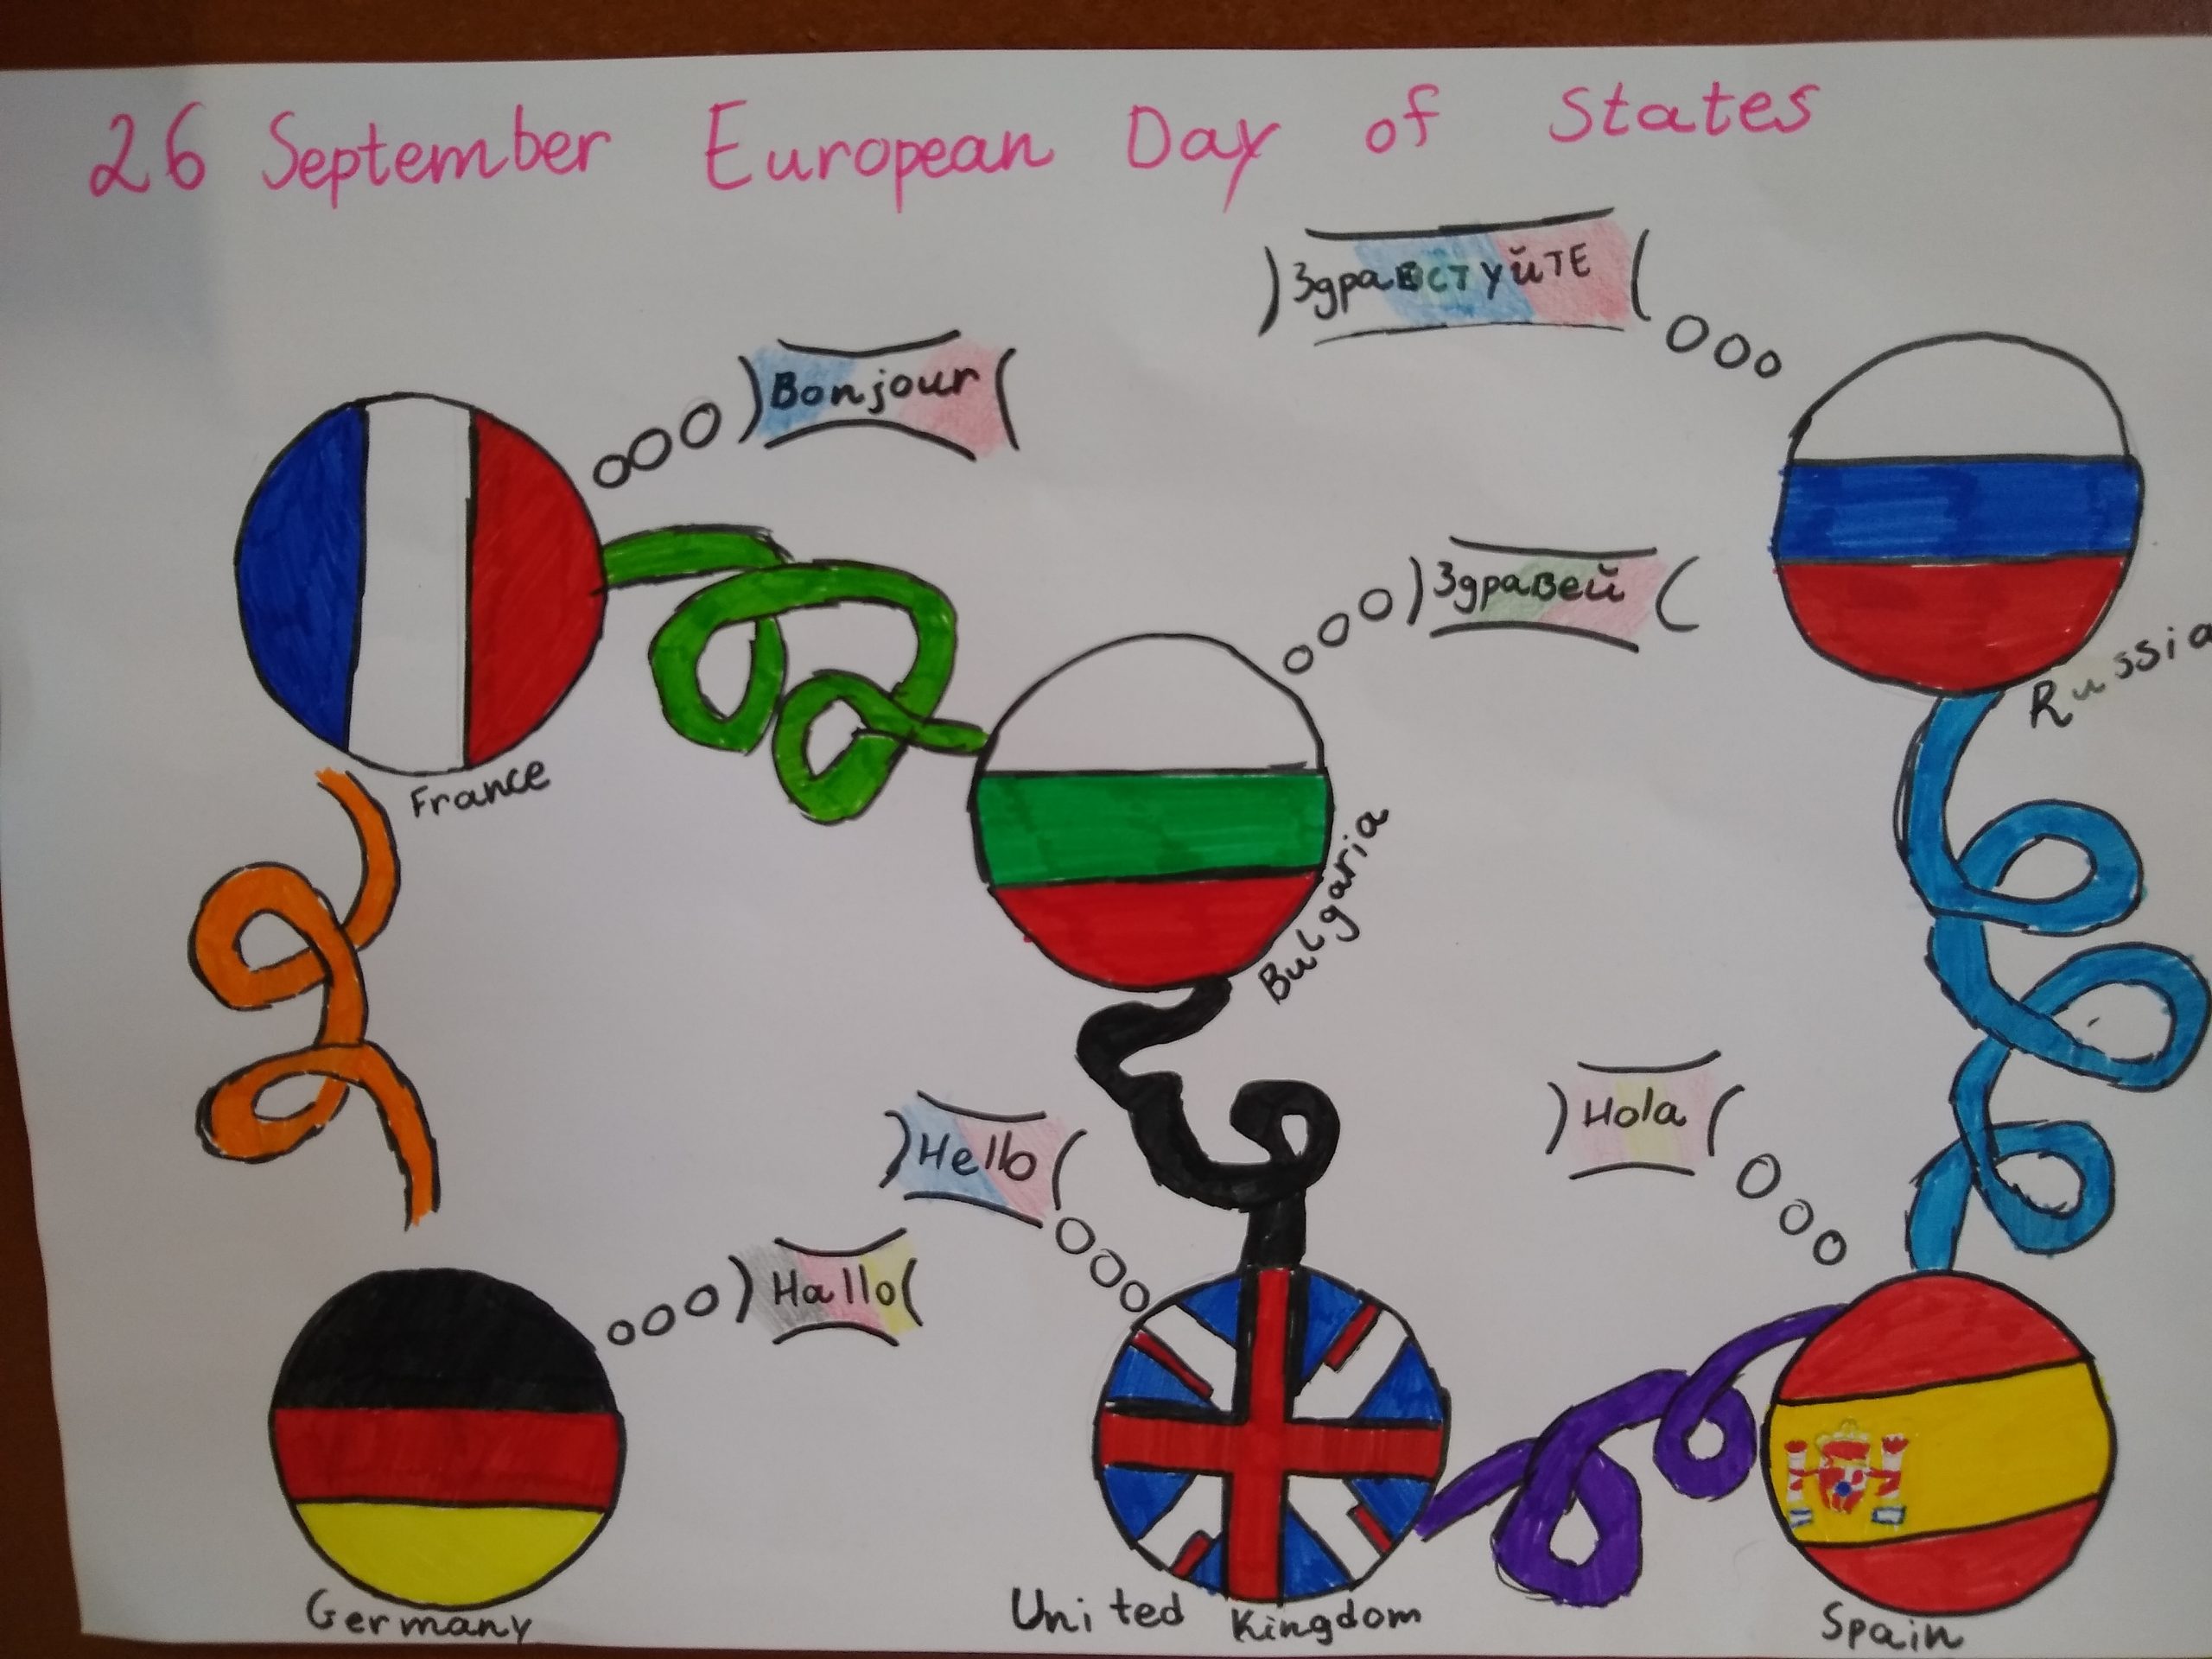 26 September European Day of States
Здравствуйте
Bonjour
Здравей
France
Russia
Bulgaria
Hello
Hola
Hallo
Germany
United Kingdom
Spain